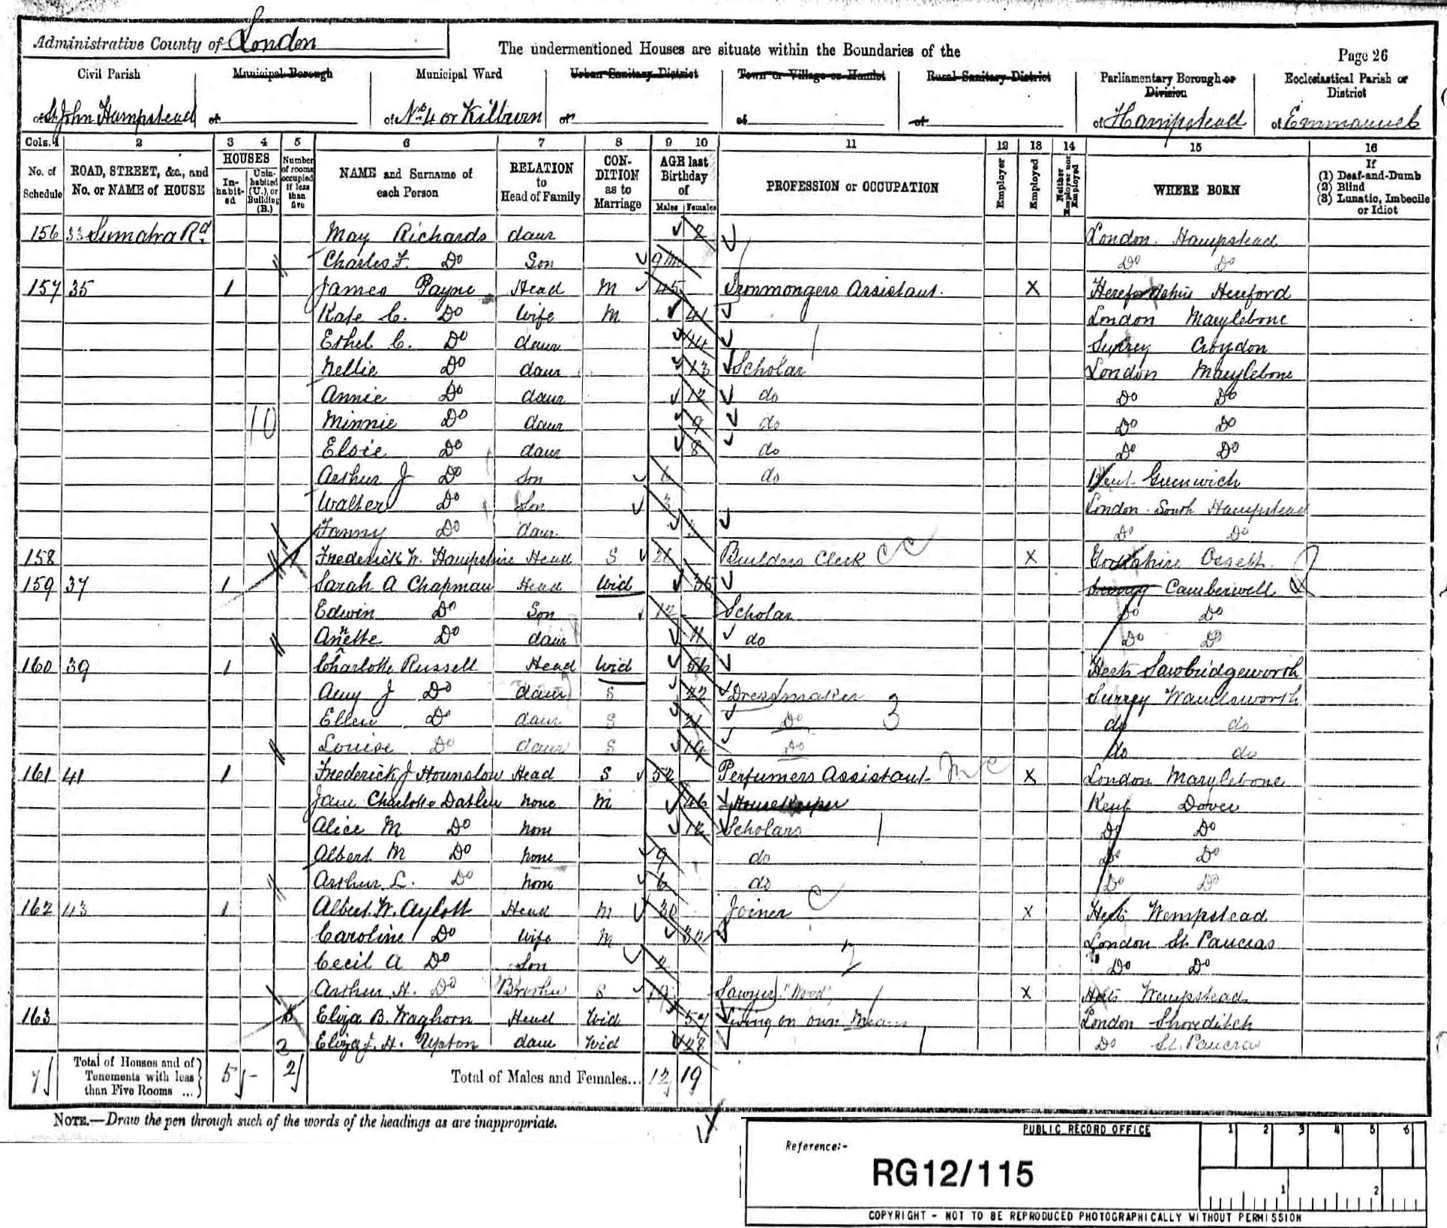 Administrative County of London
The undermentioned Houses are situate within the Boundaries of the
Page 26
Civil Parish
Municipal Borough
Municipal Ward
Urban Sanitary District
Town or Village or Hamlet
Rural Sanitary District
Parliamentary Borough or Division
Ecclesiastical Parish or District
of St John Hampstead
of
of No 4 or Kilburn
of
of
of
of Hampstead
of Emmanuel
Cols. 1 2 3 4 5 6 7 8 9 10 11 12 13 14 15 16
No. of Schedule
ROAD, STREET, &c., and No. or NAME of HOUSE
HOUSES
Inhabited
Uninhabited (U.), or Building (B.)
Number of rooms occupied if less than five
NAME and Surname of each Person
RELATION to Head of Family
CONDITION as to Marriage
AGE last Birthday of
Males Females
PROFESSION or OCCUPATION
Employer
Employed
Neither Employer nor Employed
WHERE BORN
If
(1) Deaf-and-Dumb
(2) Blind
(3) Lunatic, Imbecile or Idiot
156 33 Sumatra Rd May Richards daur 2 London Hampstead
Charles F. Do Son 9m Do Do
157 35 1 James Payne Head M 45 Ironmongers Assistant X Herefordshire Hereford
Kate C. Do Wife M 41 London Marylebone
Ethel C. Do daur 14 Surrey Croydon
Nellie Do daur 13 Scholar London Marylebone
Annie Do daur 12 do Do Do
10 Minnie Do daur 9 do Do Do
Elsie Do daur 8 do Do Do
Arthur J Do Son do Kent Greenwich
Walter Do Son London South Hampstead
Fanny Do daur Do Do
158 Frederick W. Hampshire Head S Builders Clerk X Yorkshire
159 37 1 Sarah A Chapman Head Wid 36 Camberwell
Edwin Do Son 12 Scholar Do Do
Anette Do daur 11 do Do Do
160 39 1 Charlotte Russell Head Wid 56 Herts Sawbridgeworth
Amy J Do daur S 22 Dressmaker Surrey Wandsworth
Ellen Do daur S 21 Do 3 do do
Louise Do daur S 19 Do do do
161 41 1 Frederick J Hounslow Head S 52 Perfumers Assistant X London Marylebone
Jane Charlotte none M 46 Housekeeper Kent Dover
Alice M Do none 12 Scholars Do Do
Albert M Do none 9 do Do Do
Arthur L. Do none 6 do Do Do
162 43 1 Albert W. Aylott Head M 30 Joiner X Herts Wempstead
Caroline Do Wife M 30 London St. Pancras
Cecil A Do Son 2 Do Do
Arthur H. Do Brother S 19 Sawyer "Wood" X Herts Wempstead
163 Eliza B. Waghorn Head Wid 57 Living on own Means London Shoreditch
2 Eliza J. H. Upton daur Wid 28 Do St. Pancras
7 Total of Houses and of Tenements with less than Five Rooms ... 5 - 2 Total of Males and Females... 12 19
NOTE.—Draw the pen through such of the words of the headings as are inappropriate.
PUBLIC RECORD OFFICE
1 2 3 4 5 6
Reference:-
RG12/115
1 2
COPYRIGHT - NOT TO BE REPRODUCED PHOTOGRAPHICALLY WITHOUT PERMISSION